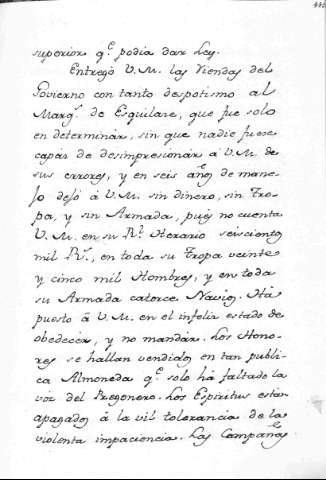 superior q.^e podia dar Ley.
Entregò V. M. las riendas del
Govierno con tanto despotismo al
Marq.^s de Esquilace, que fue solo
en determinàr, sin que nadie fuese
capàz de desimpresionàr à V. M. de
sus errores, y en seis añ.^s de mane-
jo dejó à V. M. sin dinero, sin Tro-
pa, y sin Armada, pues no cuenta
V. M. en su R.^l Herario seiscient.^s
mil R.^s, en toda su Tropa veinte
y cinco mil Hombres, y en toda
su Armada catorce Navios. Ha
puesto à V. M. en el infeliz estado de
obedecèr, y no mandàr. Los Hono-
res se hallan vendidos en tan publi-
ca Almoneda q.^e solo hà faltado la
voz del Pregonero. Los Espiritus estàn
apagados à la vil tolerancia de la
violenta impaciencia. Las Campañas